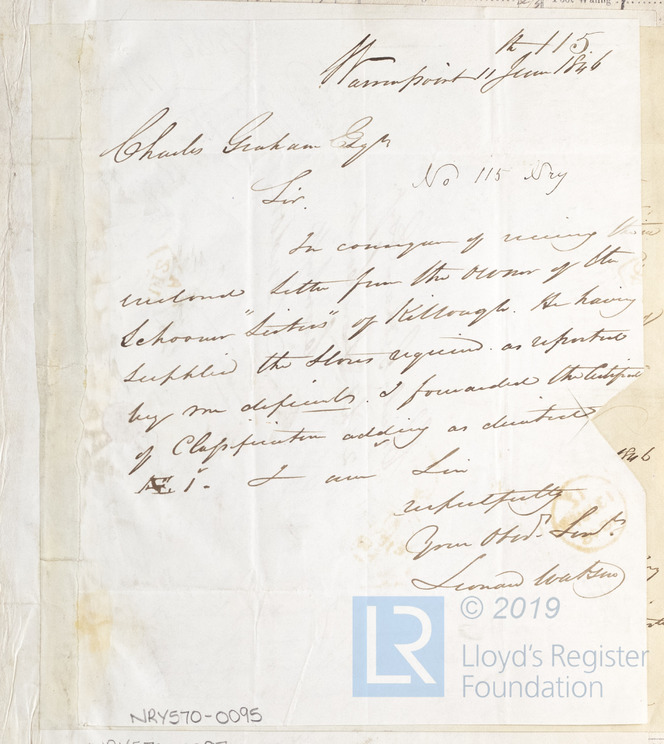 No 115
Warrenpoint 11 June 1846
Charles Graham Esqr
No 115 Nry
Sir.
In consequen of receiving the
enclosed letter from the owner of the
Schooner "Sisters" of Killough. He having
supplied the Stores required. as reported
by me deficient. I forwarded the Certificat
of Classification adding as directed
Æ 1.
I am Sir
respectfully
Your Obedt. Servt.
Leonard Watson
1846
© 2019
LR
Lloyd's Register
Foundation
NRY570-0095